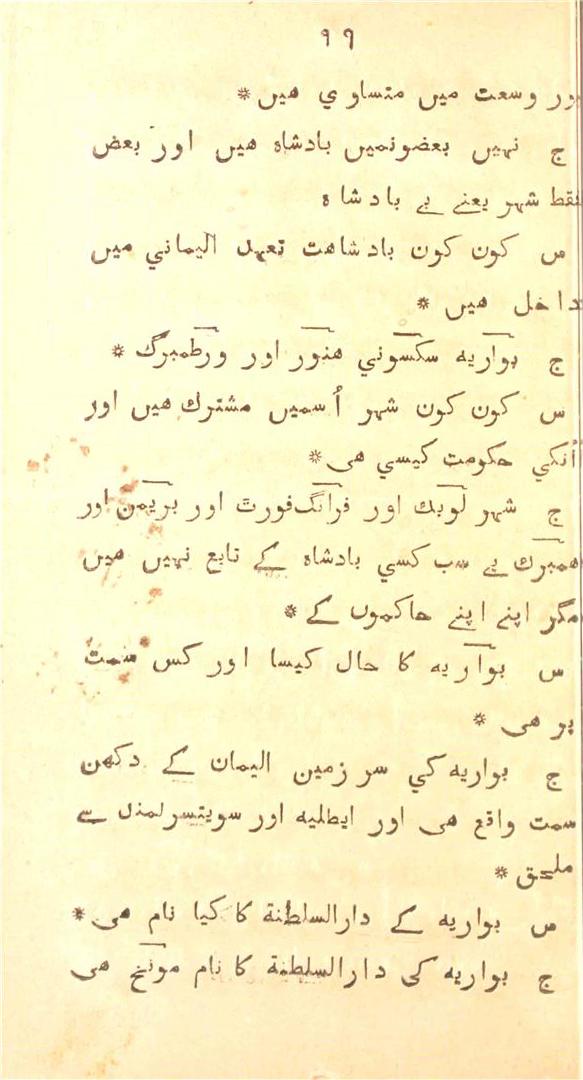 ٩٩
اور وسعت ميں متساوي هيں *
ج نہيں بعضونميں بادشاہ هيں اور بعض
فقط شہر يعنے بے بادشاہ
س کون کون بادشاهت تعہد اليماني ميں
داخل هيں *
ج بواريه سکسوني هنور اور ورطمبرگ *
س کون کون شہر اُسميں مشترك هيں اور
اُنکي حکومت کيسي هى *
ج شہر لوبك اور فرانگ فورٿ اور بريمن اور
همبرك يے سب کسي بادشاہ کے تابع نہيں هيں
مگر اپنے اپنے حاکموں کے *
س بواريه کا حال کيسا اور کس سمت
پر هى *
ج بواريه کي سر زمين اليمان کے دکھن
سمت واقع هى اور ايطليه اور سويتسرلمنڈ سے
ملحق *
س بواريه کے دارالسلطنة کا کيا نام هى *
ج بواريه کى دارالسلطنة کا نام مونخ هى